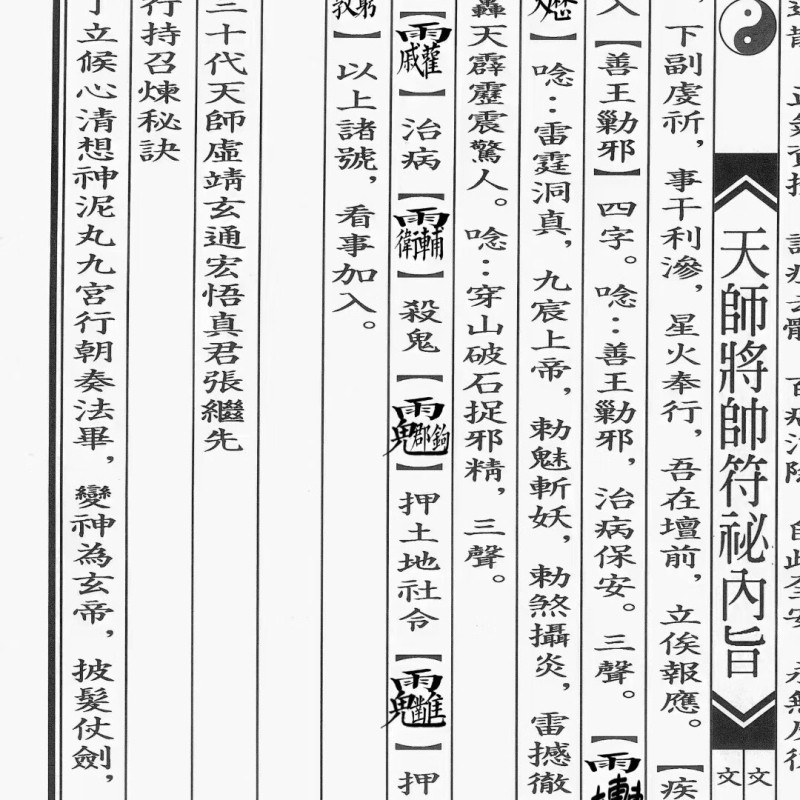 天師將帥符祕內旨
文文
，下副虔祈，事干利滲，星火奉行，吾在壇前，立俟報應。【疾
入【善王勦邪】四字。唸：善王勦邪，治病保安。三聲。【
】唸：雷霆洞真，九宸上帝，勅魅斬妖，勅煞攝炎，雷撼徹
轟天霹靂震驚人。唸：穿山破石捉邪精，三聲。
【】治病【】殺鬼【】押土地社令【】押
】以上諸號，看事加入。
三十代天師虛靖玄通宏悟真君張繼先
行持召煉秘訣
立候心清想神泥丸九宮行朝奏法畢，變神為玄帝，披髮仗劍，